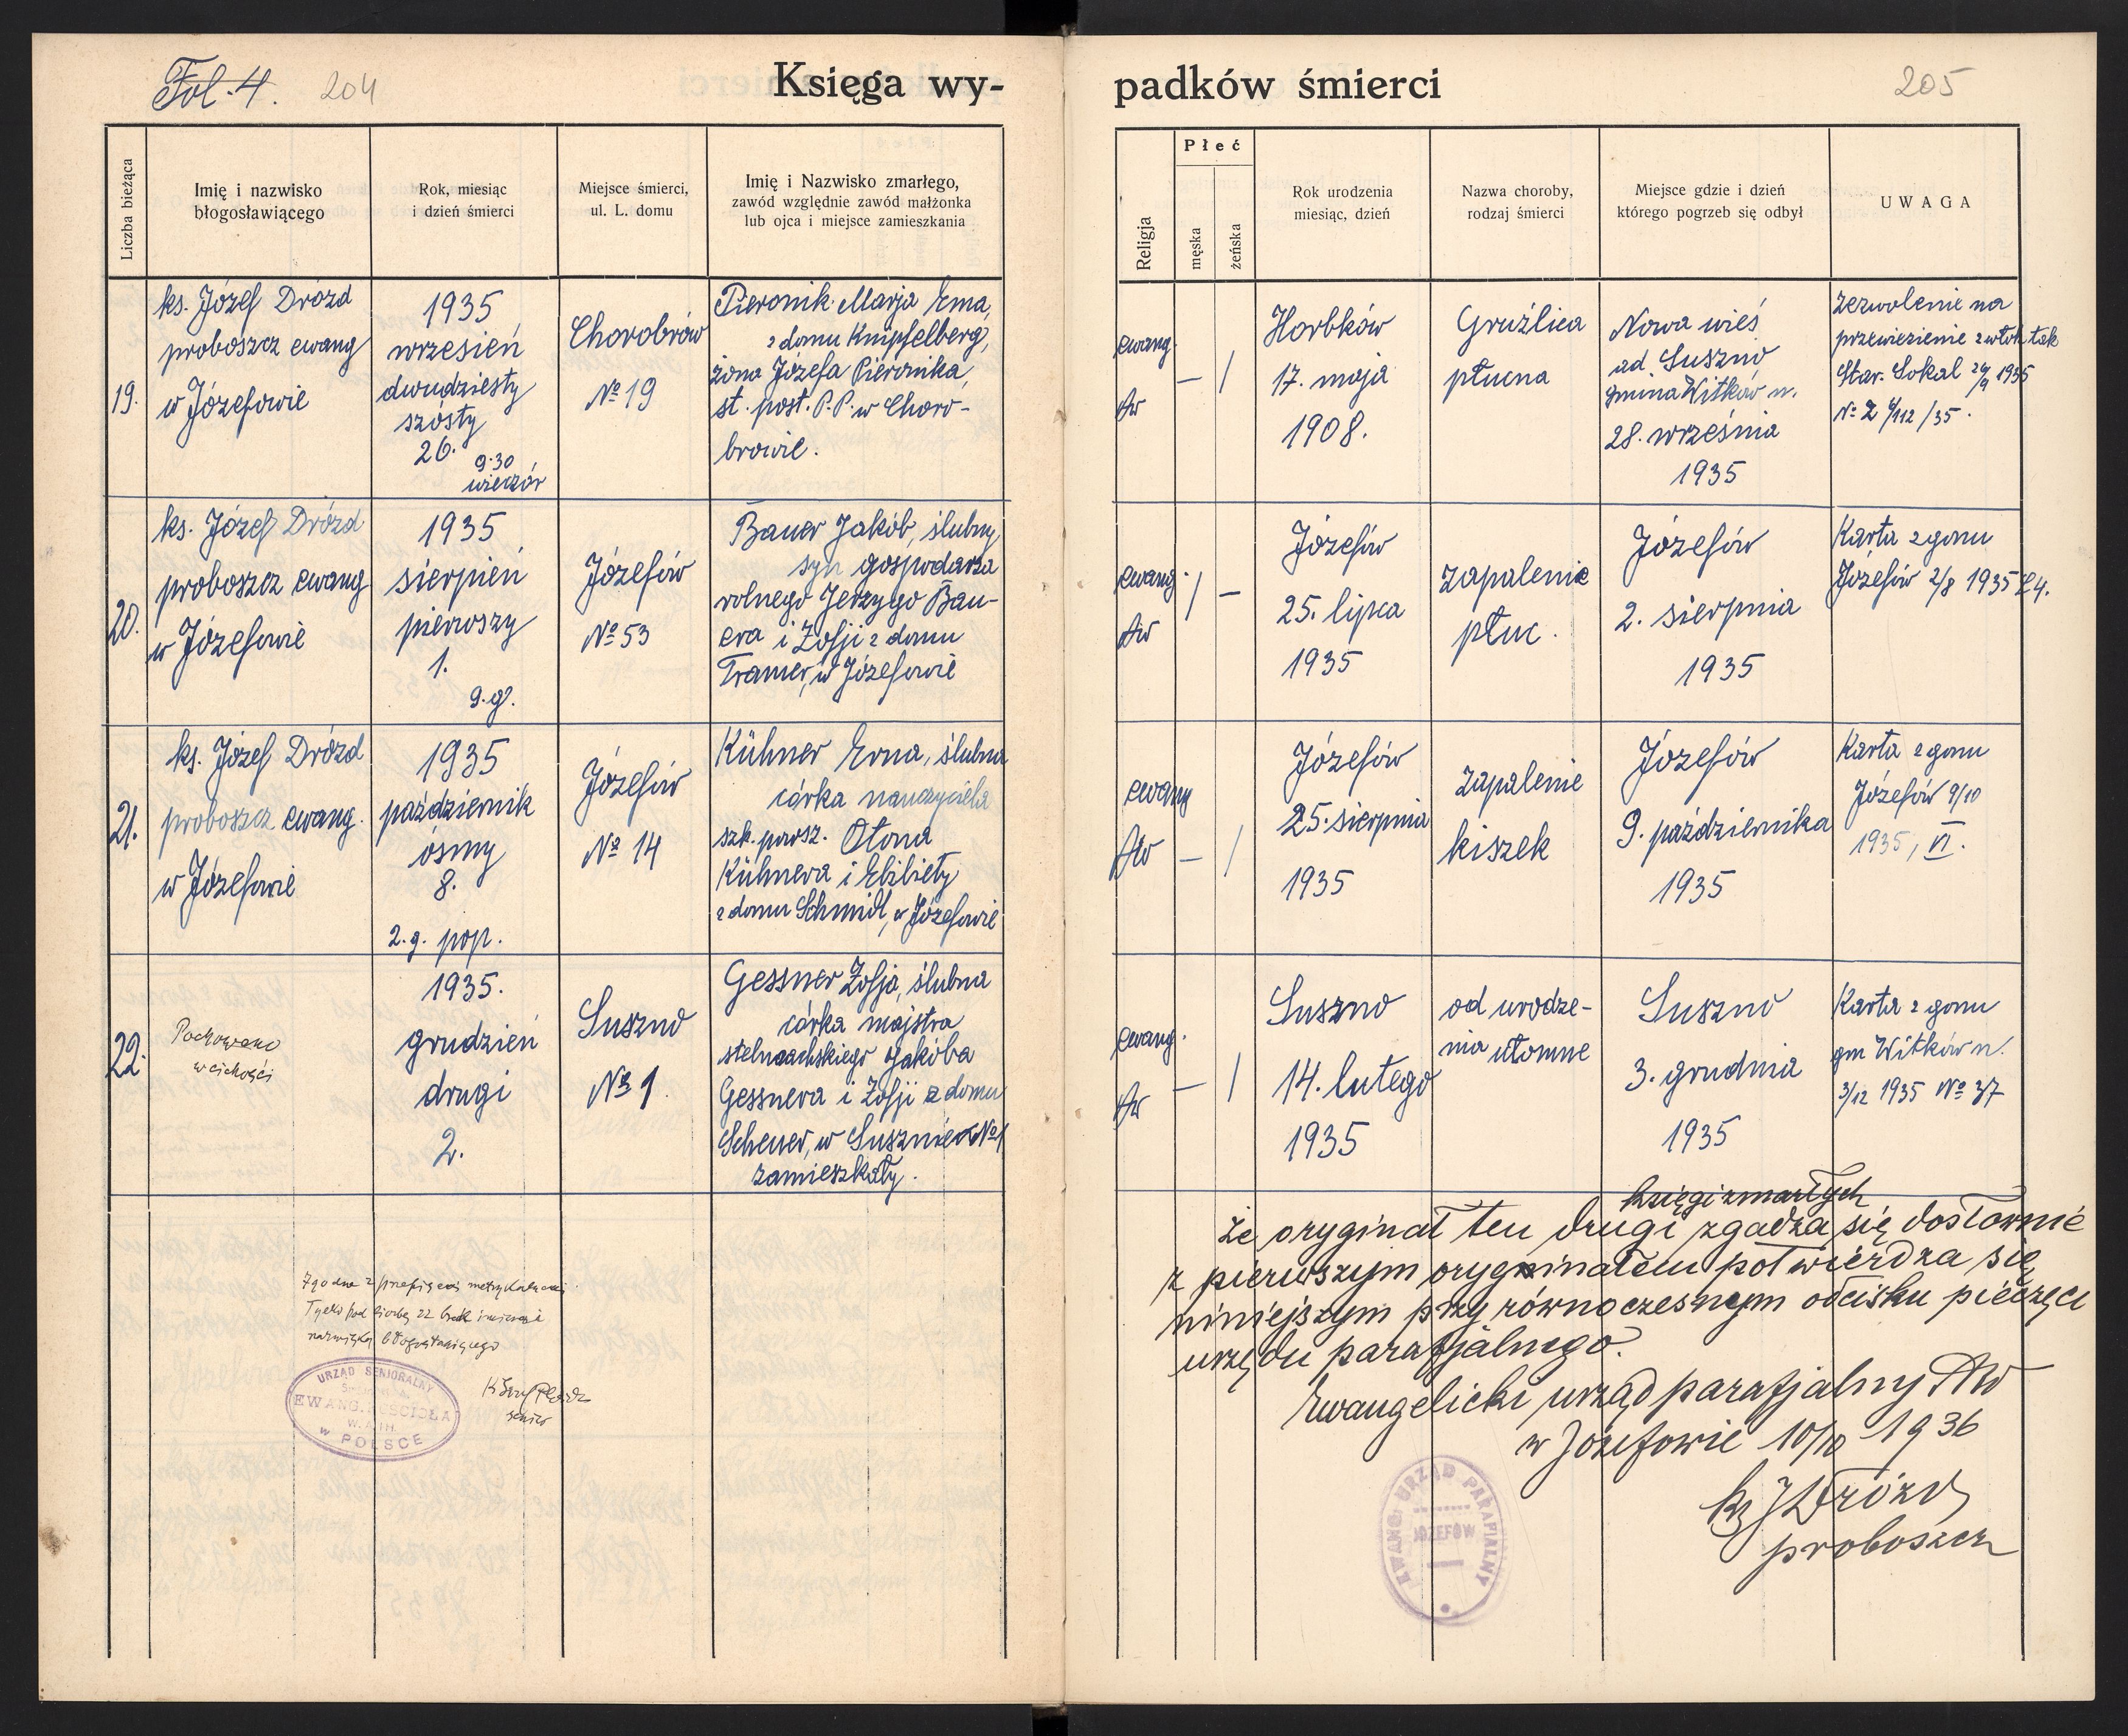 Fol. 4. 204
Księga wy-
padków śmierci
205
Liczba bieżąca
Imię i nazwisko
błogosławiącego
Rok, miesiąc
i dzień śmierci
Miejsce śmierci,
ul. L. domu
Imię i Nazwisko zmarłego,
zawód względnie zawód małżonka
lub ojca i miejsce zamieszkania
Religja
Płeć
męska
żeńska
Rok urodzenia
miesiąc, dzień
Nazwa choroby,
rodzaj śmierci
Miejsce gdzie i dzień
którego pogrzeb się odbył
UWAGA
19.
ks. Józef Drózd
proboszcz ewang
w Józefowie
1935
wrzesień
dwudziesty
szósty
26.
9·30
wieczór
Chorobrów
№ 19
Pieronik Marja Erna,
z domu Knipfelberg,
żona Józefa Pieronika,
st. post. P.P. w Choro-
browie.
ewang.
Aw
— /
Horbków
17. maja
1908.
Gruźlica
płucna
Nowa wieś
ad. Suszno
gmina Witków n.
28. września
1935
Zezwolenie na
przewiezienie zwłok tak
Star. Sokal 1935
№ 2 /35.
20.
ks. Józef Drózd
proboszcz ewang
w Józefowie
1935
sierpień
pierwszy
1.
9.g.
Józefów
№ 53
Bauer Jakób, ślubny
syn gospodarza
rolnego Jerzygo Bau-
era i Zofji z domu
Tramer, w Józefowie
ewang.
Aw
/ —
Józefów
25. lipca
1935
zapalenie
płuc.
Józefów
2. sierpnia
1935
Karta zgonu
Józefów 2/8 1935 L4.
21.
ks. Józef Drózd
proboszcz ewang.
w Józefowie
1935
październik
ósmy
8.
2.g. pop.
Józefów
№ 14
Kühner Erna, ślubna
córka nauczyciela
szk. powsz. Otona
Kühnera i Elżbiety
z domu Schmidt, w Józefowie
ewang
Aw
— /
Józefów
25. sierpnia
1935
zapalenie
kiszek
Józefów
9. października
1935
Karta zgonu
Józefów 9/10
1935, VI.
22.
Pochowano
w cichości
1935.
grudzień
drugi
2.
Suszno
№ 1.
Gessner Zofja, ślubna
córka majstra
stelmachskiego Jakóba
Gessnera i Zofji z domu
Scheuer, w Susznie №1
zamieszkały.
ewang.
Aw
— /
Suszno
14. lutego
1935
od urodze-
nia ułomne
Suszno
3. grudnia
1935
Karta zgonu
gm Witków n.
3/12 1935 № 37
księgi zmarłych
że oryginał ten drugi zgadza się dosłownie
z pierwszym oryginałem potwierdza się
niniejszym przy równoczesnym odcisku pieczęci
urzędu parafjalnego.
Ewangelicki urząd parafjalny Aw
w Józefowie 10/10 1936
ks J Drózd
proboszcz
EWANG. URZĄD PARAFIALNY
JÓZEFÓW
Zgodne z przepisami metrykalnemi
Tylko pod liczbą 22 brak imienia i
nazwiska błogosławiącego
senior
URZĄD SENIORALNY
EWANG. KOŚCIOŁA
W POLSCE